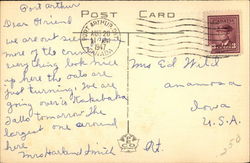 Port Arthur
POST CARD
Dear Friend
we are out seeing
more of the country
everything looks nice
up here the oats are
just turning, we are
going over to Kakabeka
Falls tomorrow the
largest one around
here
Mrs Harland Smith
PORT ARTHUR
AUG 20
1947
Mrs Ed Wild
Anamosa
Iowa
U.S.A.
Rt.